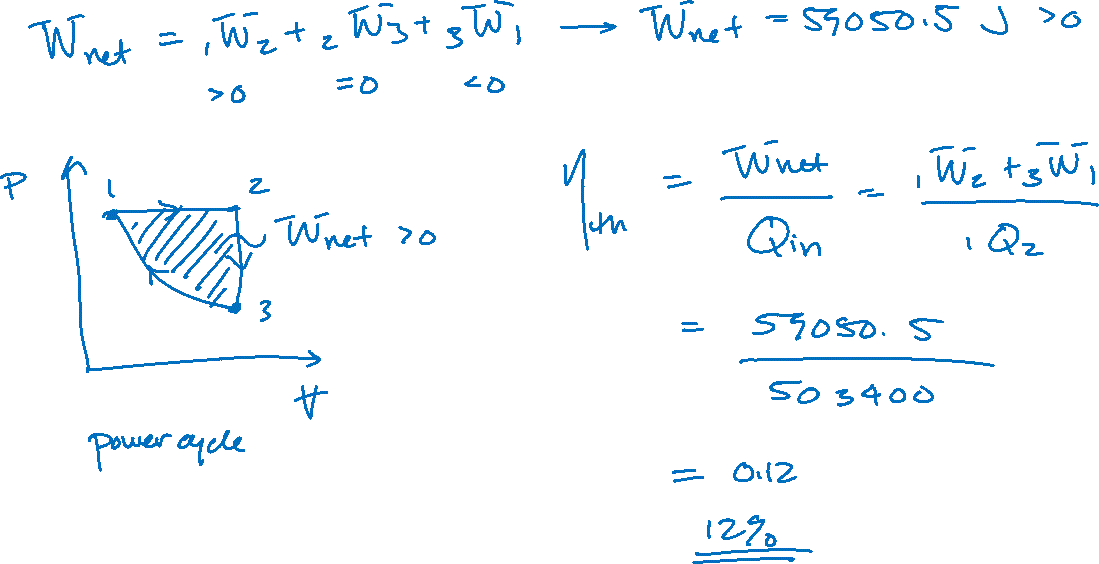 W_net = ₁W₂ + ₂W₃ + ₃W₁ → W_net = 59050.5 J >0
>0 =0 <0
P
1 2
W_net >0
3
V
power cycle
η_th = W_net / Q_in = (₁W₂ + ₃W₁) / ₁Q₂
= 59050.5 / 503400
= 0.12
12%